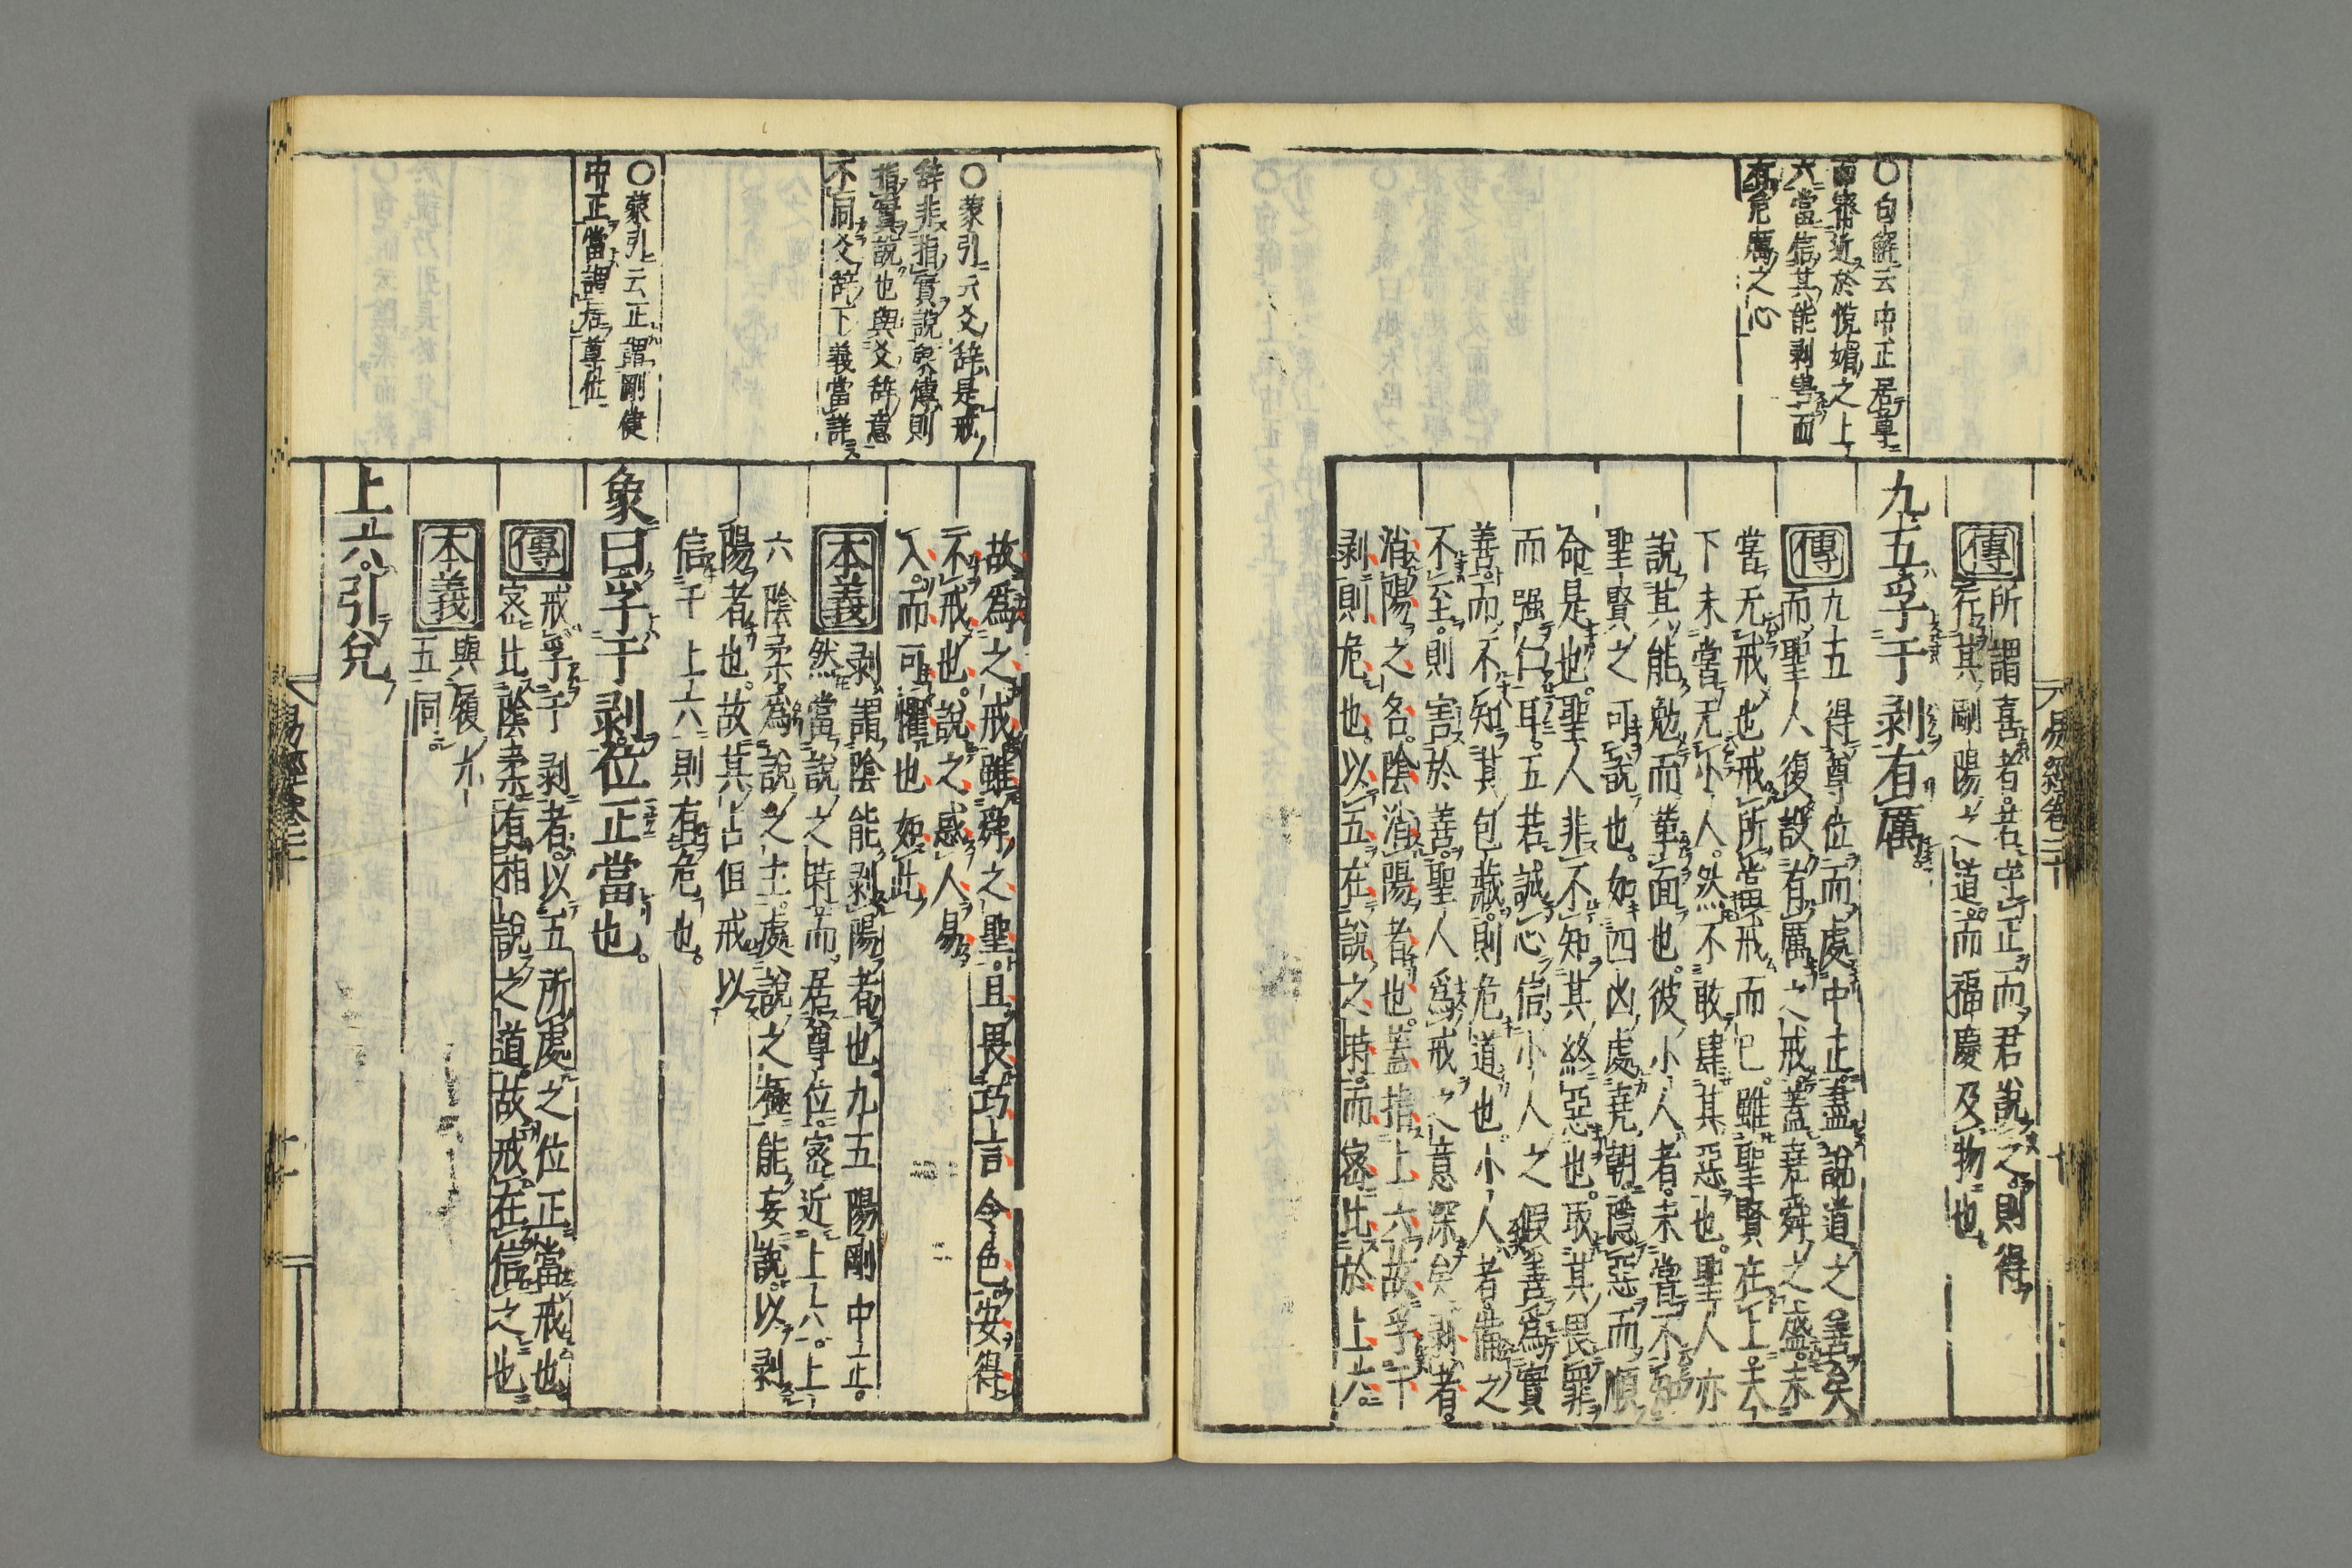 易經卷二十
〇旬解云中正居尊
而密近於悅媚之上
六當信其能剥害而
有危厲之心
傳
所謂喜者若守正而君說之則得
行其剛陽之道而福慶及物也
九五孚于剥有厲
傳
九五得尊位而處中正盡說道之善矣
而聖人復設有厲之戒蓋堯舜之盛未
嘗无戒也戒所當戒而已雖聖賢在上天
下未嘗无小人然不敢肆其惡也聖人亦
說其能勉而革面也彼小人者未嘗不知
聖賢之可說也如四凶處堯朝隱惡而順
命是也聖人非不知其終惡也取其畏罪
而强仁耳五若誠心信小人之假善爲實
善而不知其包藏則危道也小人者備之
不至則害於善聖人爲戒之意深矣剥者
消陽之名陰消陽者也蓋指上六故孚于
剥則危也以五在說之時而密比於上六
〇蒙引云爻辞是戒
辞非指實說象傳則
指實說也與爻辞意
不同爻辞下義當詳
〇蒙引云正謂剛健
中正當謂居尊位
故爲之戒雖舜之聖且畏巧言令色安得
不戒也說之惑人易
入而可懼也如此
本義
剥謂陰能剥陽者也九五陽剛中正
然當說之時而居尊位密近上六上
六陰柔爲說之主處說之極能妄說以剥
陽者也故其占但戒以
信于上六則有危也
象曰孚于剥位正當也
傳
戒孚于剥者以五所處之位正當戒也
密比陰柔有相說之道故戒在信之也
本義
與履九
五同
上六引兌
易經卷二十
十一